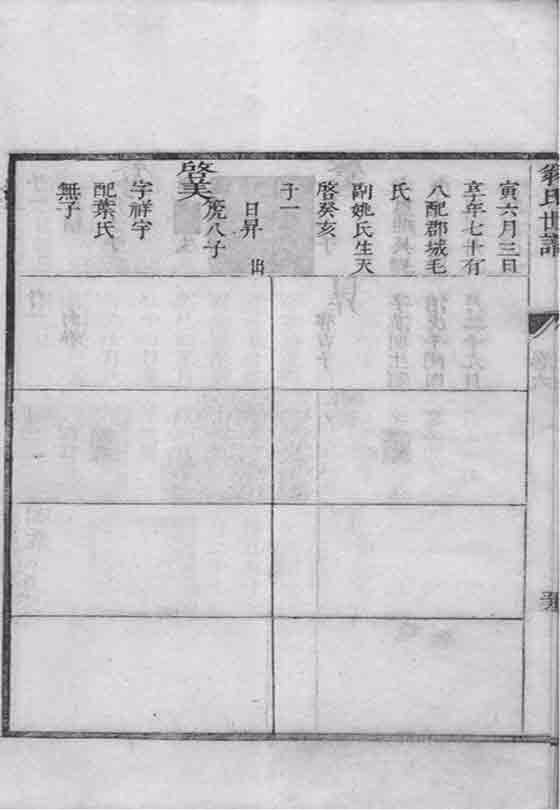 翁氏世譜
寅六月三日
享年七十有
八配郡城毛
氏
副姚氏生天
啓癸亥
子一
日昇 出
啓美
虎八子
字祥宇
配葉氏
無子